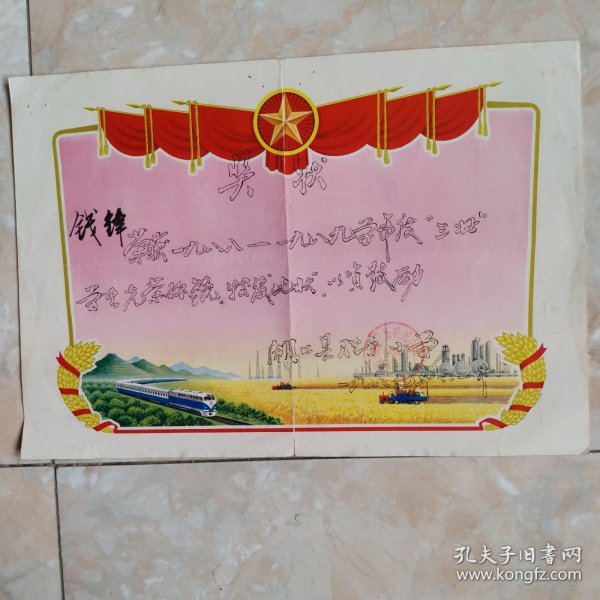 奖状
钱锋
荣获一九八八—一九八九学年度“三好”
学生光荣称号。特发此状，以资鼓励
湖口县 小学
一九八
孔夫子旧书网
www.kongfz.com